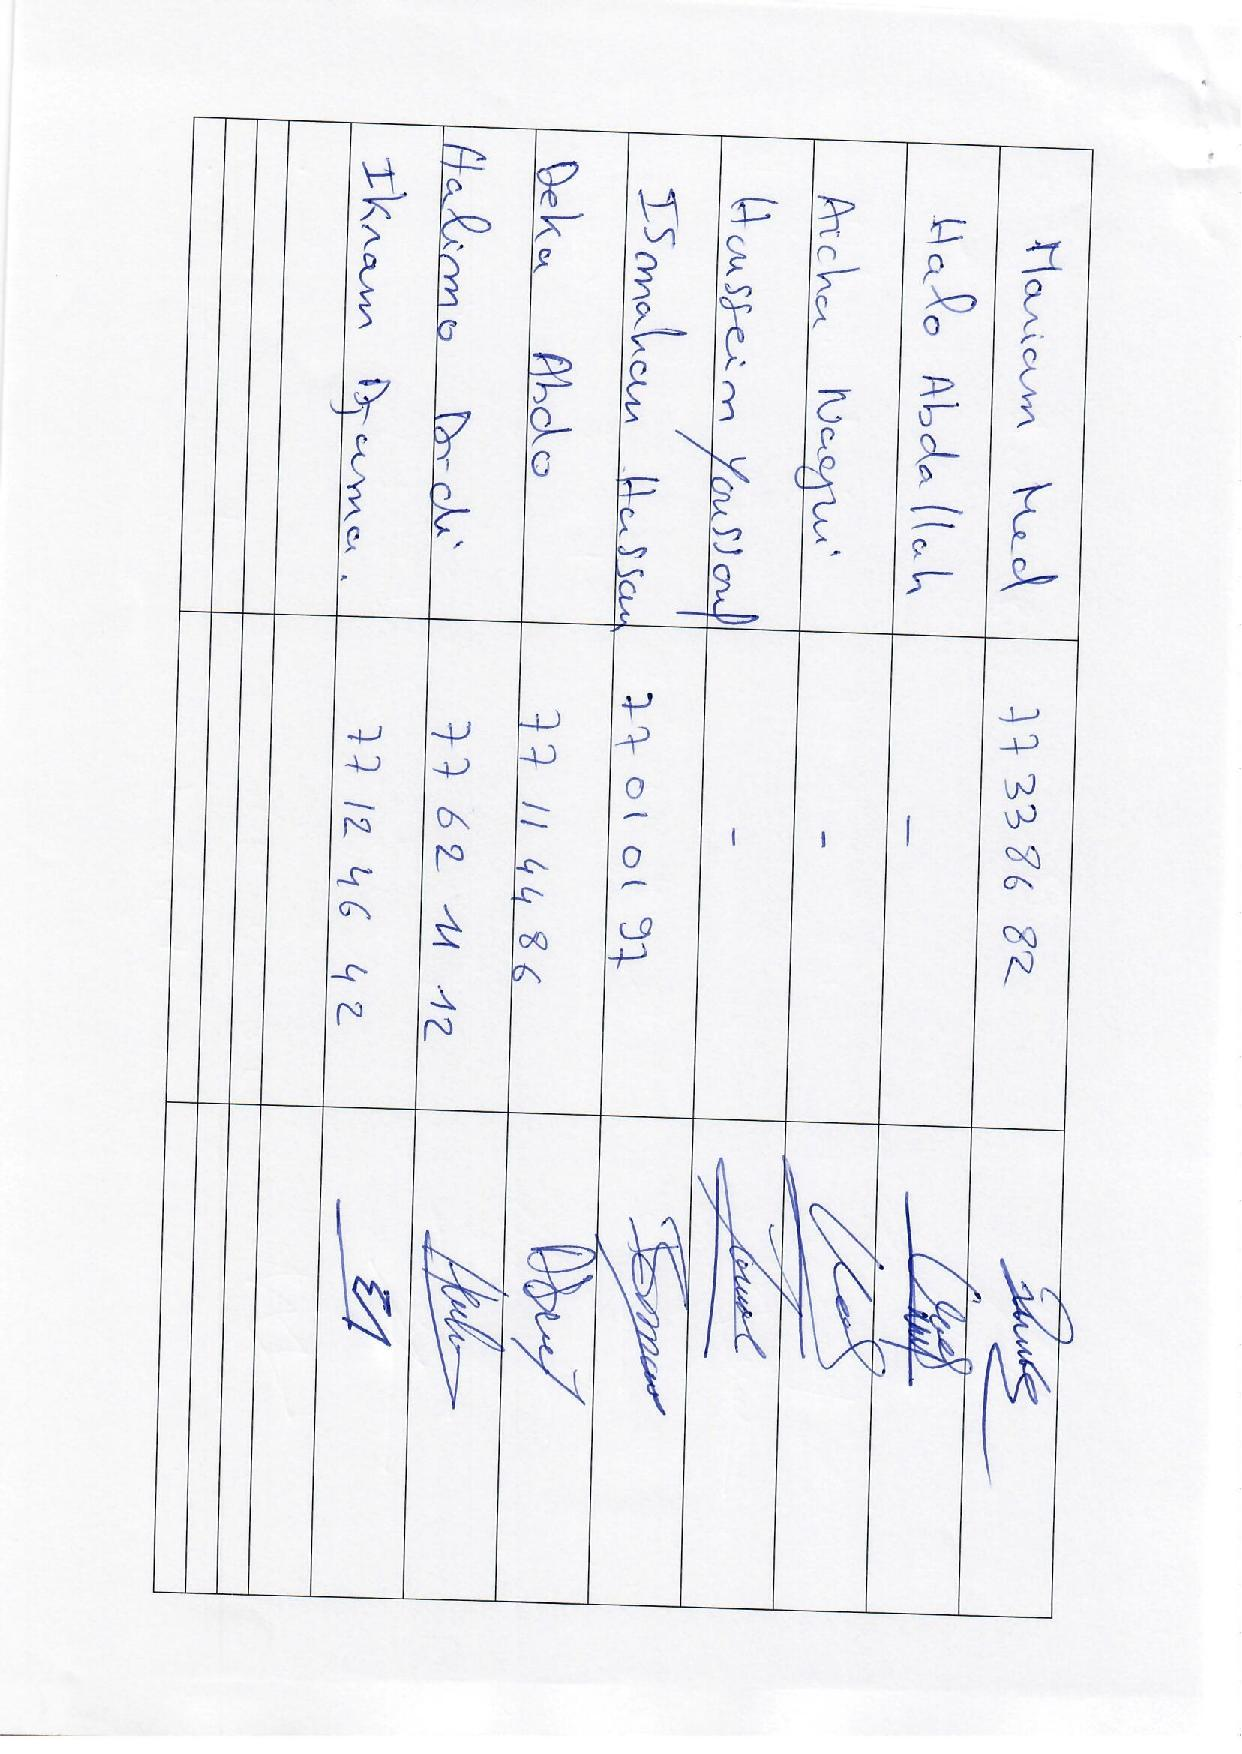 Mariam Med 77 33 86 82
Halo Abdallah -
Aicha Nagui -
Houssein Youssouf -
Ismahan Hassan 77 01 01 97
Deka Abdo 77 11 44 86
Halimo Dr-di 77 62 11 12
Ikram Djama. 77 12 46 42